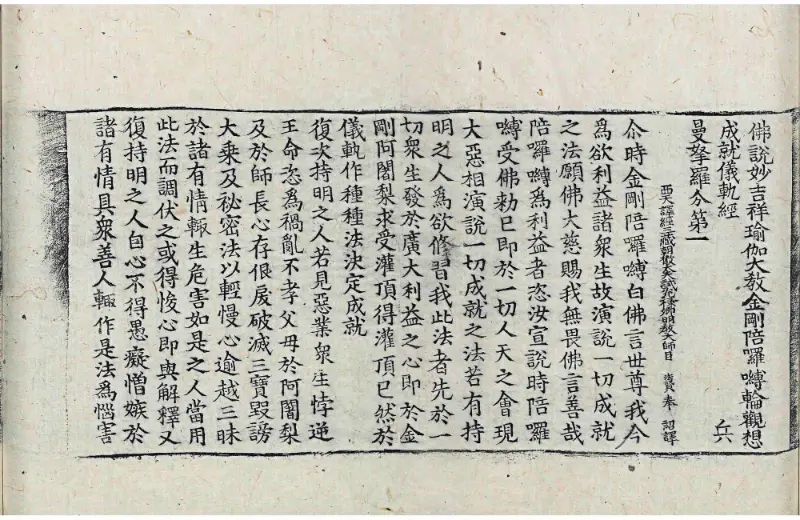 佛說妙吉祥瑜伽大教金剛陪囉嚩輪觀想
成就儀軌經　兵
曼拏羅分第一
西天譯經三藏朝散大夫試鴻臚少卿明教大師臣　法賢奉　詔譯
尒時金剛陪囉嚩白佛言世尊我今
爲欲利益諸衆生故演說一切成就
之法願佛大慈賜我無畏佛言善哉
陪囉嚩爲利益者恣汝宣說時陪囉
嚩受佛勅已即於一切人天之會現
大惡相演說一切成就之法若有持
明之人爲欲修習我此法者先於一
切衆生發於廣大利益之心即於金
剛阿闍梨求受灌頂得灌頂已然於
儀軌作種種法決定成就
復次持明之人若見惡業衆生悖逆
王命恣爲禍亂不孝父母於阿闍梨
及於師長心存佷戾破滅三寶毀謗
大乗及秘密法以輕慢心逾越三昧
於諸有情輙生危害如是之人當用
此法而調伏之或得悛心即與解釋又
復持明之人自心不得愚癡憎嫉於
諸有情具衆善人輙作是法爲惱害